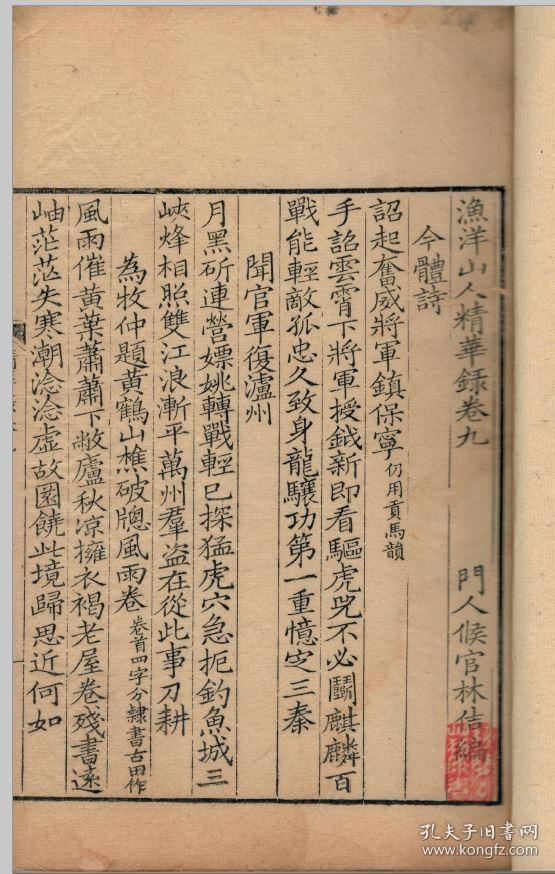 漁洋山人精華録卷九 門人候官林佶編
今體詩
詔起奮威將軍鎮保寧仍用貢馬韻
手詔雲霄下將軍授鉞新即看驅虎兕不必鬬麒麟百
戰能輕敵孤忠久致身龍驤功第一重憶定三秦
聞官軍復瀘州
月黑斫連營嫖姚轉戰輕已探猛虎穴急扼釣魚城三
峽烽相照雙江浪漸平萬州羣盜在從此事刀耕
為牧仲題黃鶴山樵破牕風雨卷卷首四字分隸書古田作
風雨催黃葉蕭蕭下敝廬秋凉擁衣褐老屋卷殘書遠
岫茫茫失寒潮淰淰虛故園饒此境歸思近何如
孔夫子旧书网
www.kongfz.com